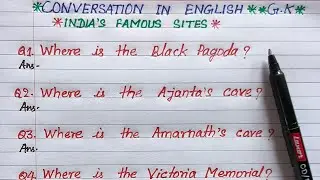 *CONVERSATION IN ENGLISH **G.K*
*INDIA'S FAMOUS SITES*
Q1. Where is the Black Pagoda?
Ans-
Q2. Where is the Ajanta's cave?
Ans-
Q3. Where is the Amarnath's cave?
Ans-
Q4. Where is the Victoria Memorial?